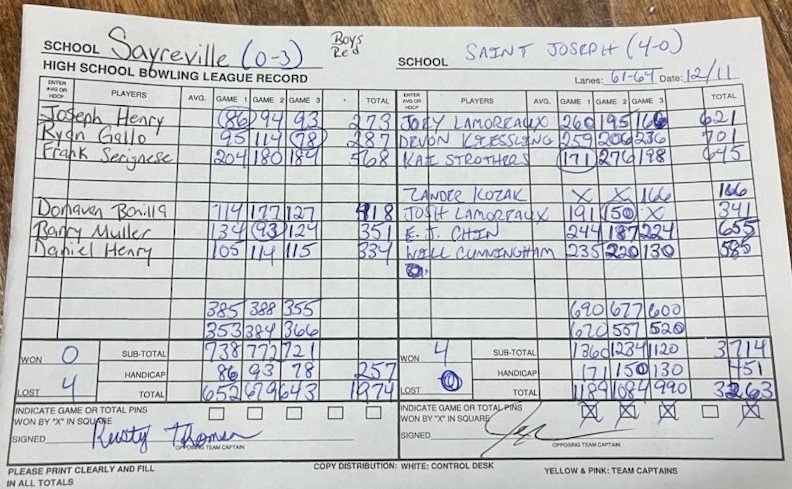 SCHOOL Sayreville (0-3) Boys Red SCHOOL SAINT JOSEPH (4-0)
HIGH SCHOOL BOWLING LEAGUE RECORD Lanes: 61-64 Date: 12/11
ENTER AVG OR HDCP PLAYERS AVG. GAME 1 GAME 2 GAME 3 TOTAL ENTER AVG OR HDCP PLAYERS AVG. GAME 1 GAME 2 GAME 3 TOTAL
Joseph Henry 86 94 93 273 JOEY LAMOREAUX 260 195 166 621
Ryan Gallo 95 114 78 287 DEVON KIESSLING 259 206 236 701
Frank Serignese 204 180 184 568 KAI STROTHERS 171 276 198 645
ZANDER KOZAK X X 166 166
Donavan Bonilla 114 177 127 418 JOSH LAMOREAUX 191 150 X 341
Barry Muller 134 93 124 351 E.J. CHIN 244 187 224 655
Daniel Henry 105 114 115 334 WILL CUNNINGHAM 235 220 130 585
385 388 355 690 677 600
353 384 366 670 557 520
WON 0 SUB-TOTAL 738 772 721 WON 4 SUB-TOTAL 1360 1234 1120 3714
HANDICAP 86 93 78 257 HANDICAP 171 150 130 451
LOST 4 TOTAL 652 679 643 1974 LOST 0 TOTAL 1189 1084 990 3263
INDICATE GAME OR TOTAL PINS WON BY "X" IN SQUARE INDICATE GAME OR TOTAL PINS WON BY "X" IN SQUARE X X X X
SIGNED Rusty Thomsen SIGNED
OPPOSING TEAM CAPTAIN OPPOSING TEAM CAPTAIN
PLEASE PRINT CLEARLY AND FILL IN ALL TOTALS COPY DISTRIBUTION: WHITE: CONTROL DESK YELLOW & PINK: TEAM CAPTAINS